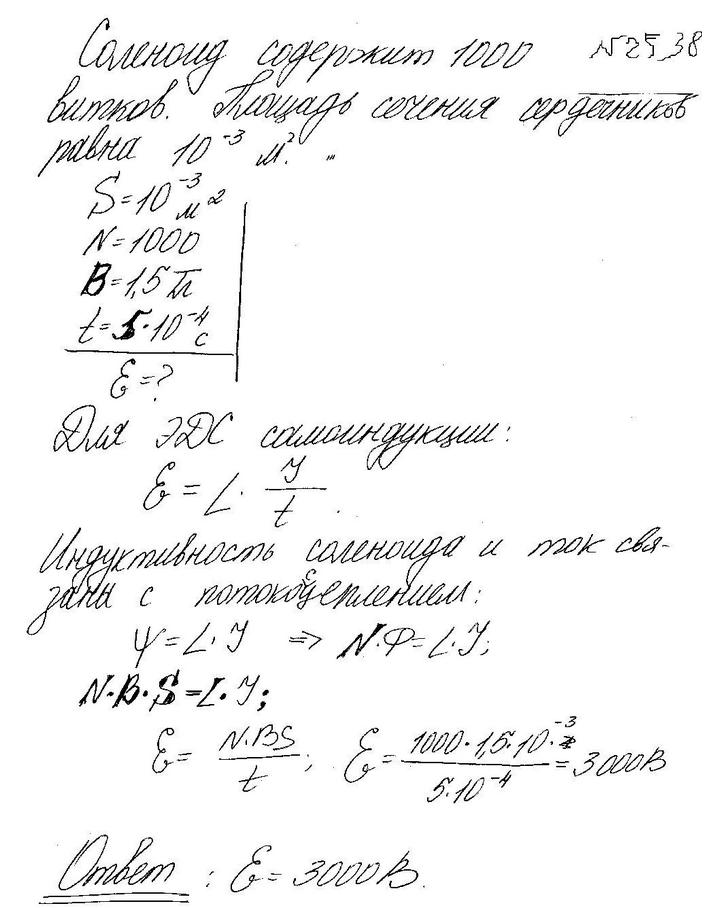 Соленоид содержит 1000 №25,38
витков. Площадь сечения сердечников
равна 10⁻³ м². ...
S=10⁻³ м²
N=1000
B=1,5 Тл
t=5·10⁻⁴ с
ℰ=?
Для ЭДС самоиндукции:
ℰ = L · I/t.
Индуктивность соленоида и ток свя-
заны с потокосцеплением:
Ψ=L·I => N·Ф=L·I;
N·B·S=L·I;
ℰ= N·BS/t; ℰ= 1000·1,5·10⁻³/5·10⁻⁴ =3000В
Ответ: ℰ=3000В.